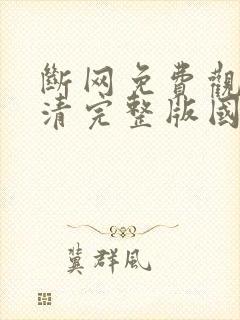 斷网免費觀
清完整版國
冀群风